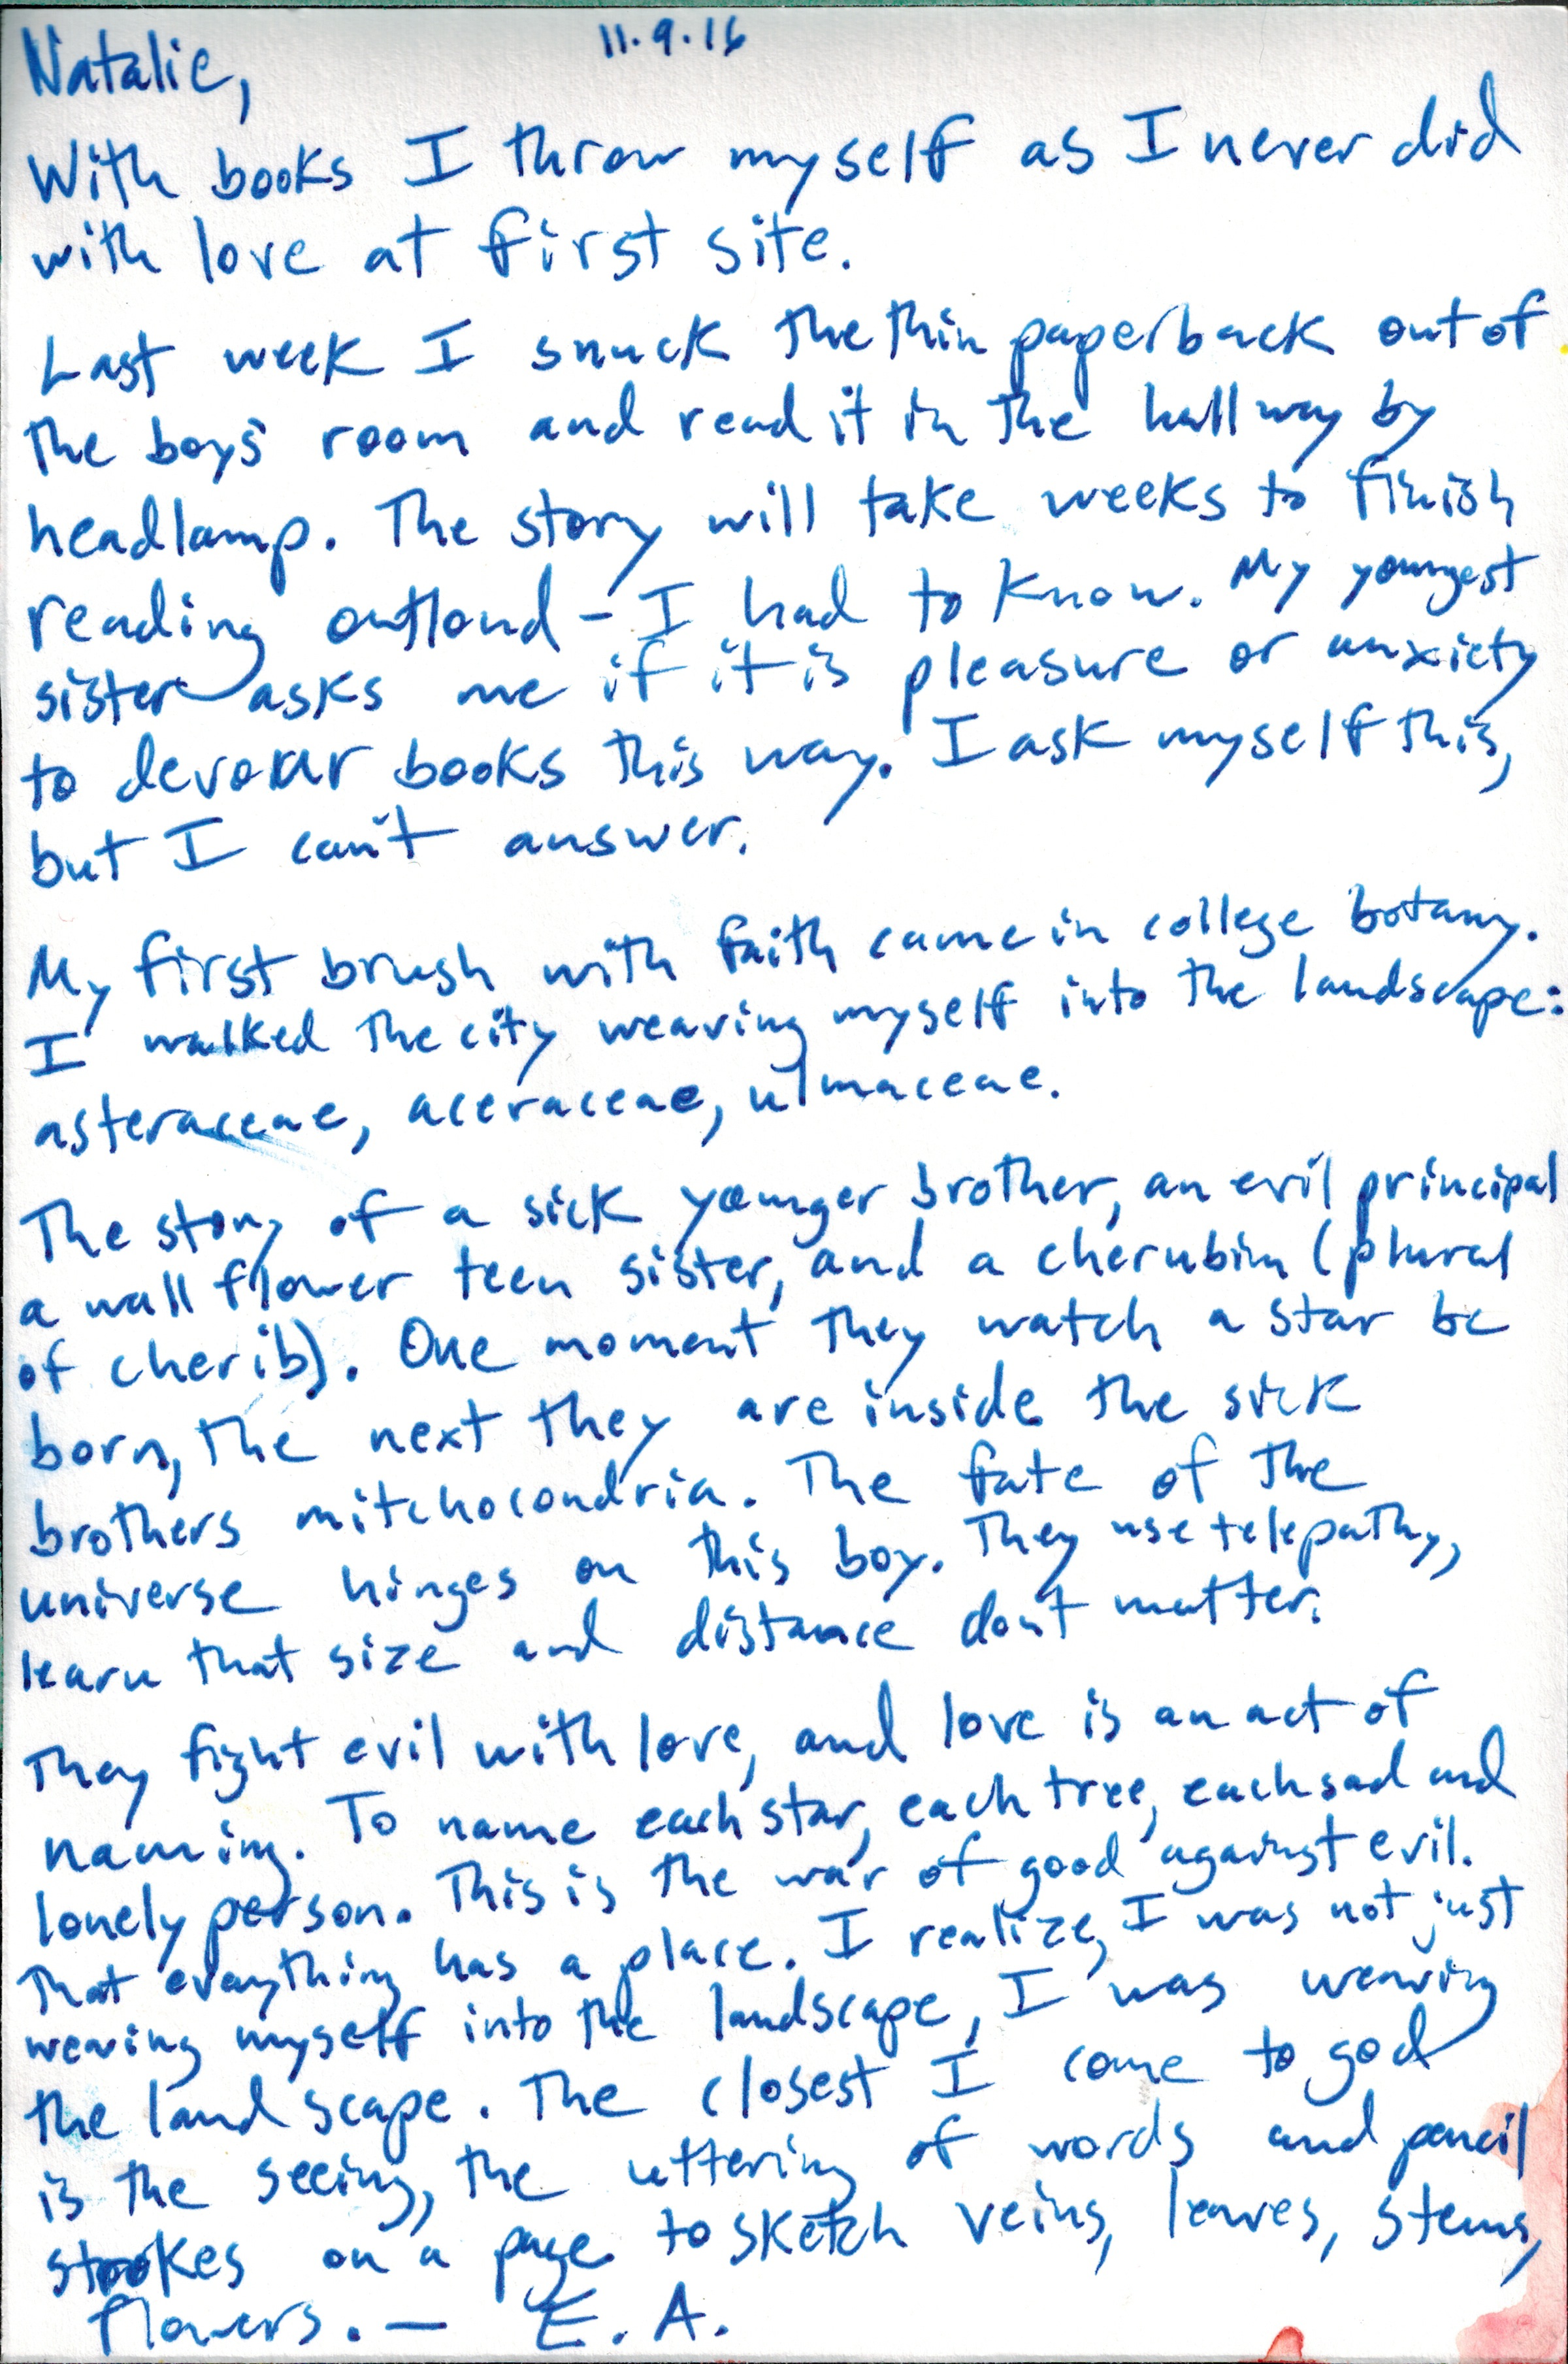 11.9.16
Natalie,
With books I throw myself as I never did
with love at first site.
Last week I snuck the thin paperback out of
the boys' room and read it in the hallway by
headlamp. The story will take weeks to finish
reading outloud – I had to know. My youngest
sister asks me if it is pleasure or anxiety
to devour books this way. I ask myself this,
but I can't answer.
My first brush with faith came in college botany.
I walked the city weaving myself into the landscape:
asteraceae, aceraceae, ulmaceae.
The story of a sick younger brother, an evil principal
a wallflower teen sister, and a cherubim (plural
of cherib). One moment they watch a star be
born, the next they are inside the sick
brothers mitchocondria. The fate of the
universe hinges on this boy. They use telepathy,
learn that size and distance don't matter.
They fight evil with love, and love is an act of
naming. To name each star, each tree, each sad and
lonely person. This is the war of good against evil.
That everything has a place. I realize, I was not just
weaving myself into the landscape, I was weaving
the landscape. The closest I come to god
is the seeing, the uttering of words and pencil
strokes on a page to sketch veins, leaves, stems,
flowers. — E. A.